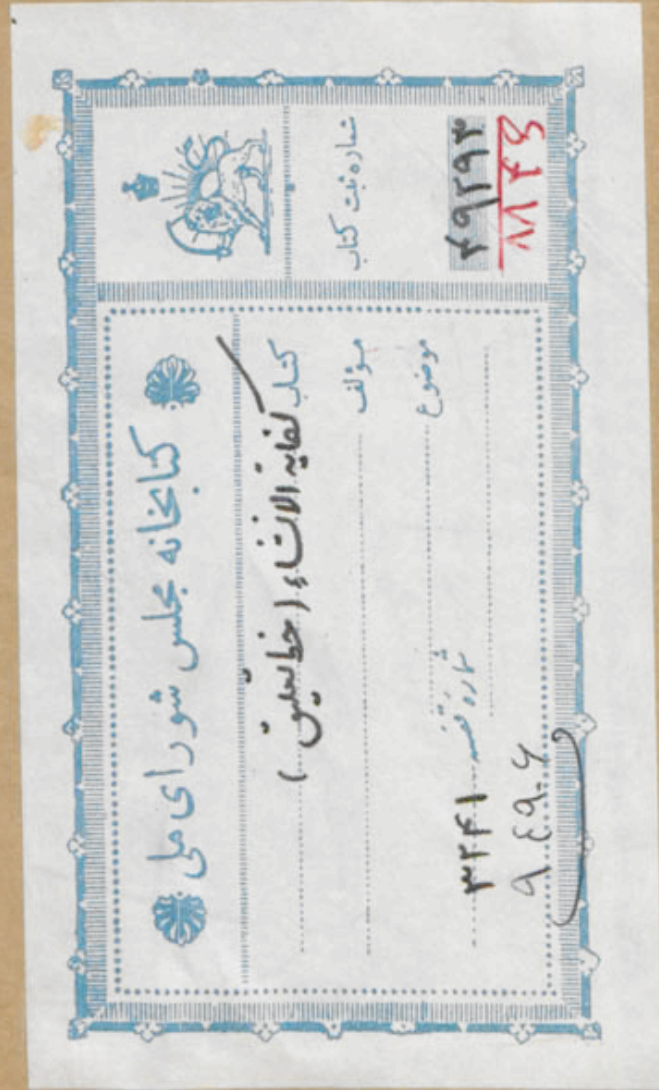 کتابخانه مجلس شورای ملی
کتاب کفایة الانشاء (خط تعلیق)
مؤلف
موضوع
شماره قفسه ۳۲۴۱
۹٤۹۰۶
شماره ثبت کتاب
۴۹۲۹۳